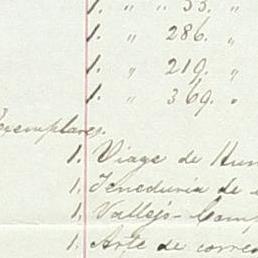 1. " " 55. "
1. " 286. "
1. " 219. "
1. " 369. "
Exemplares.
1. Viage de Hum
1. Teneduria de
1. Vallejo - Comp
1. Arte de corre